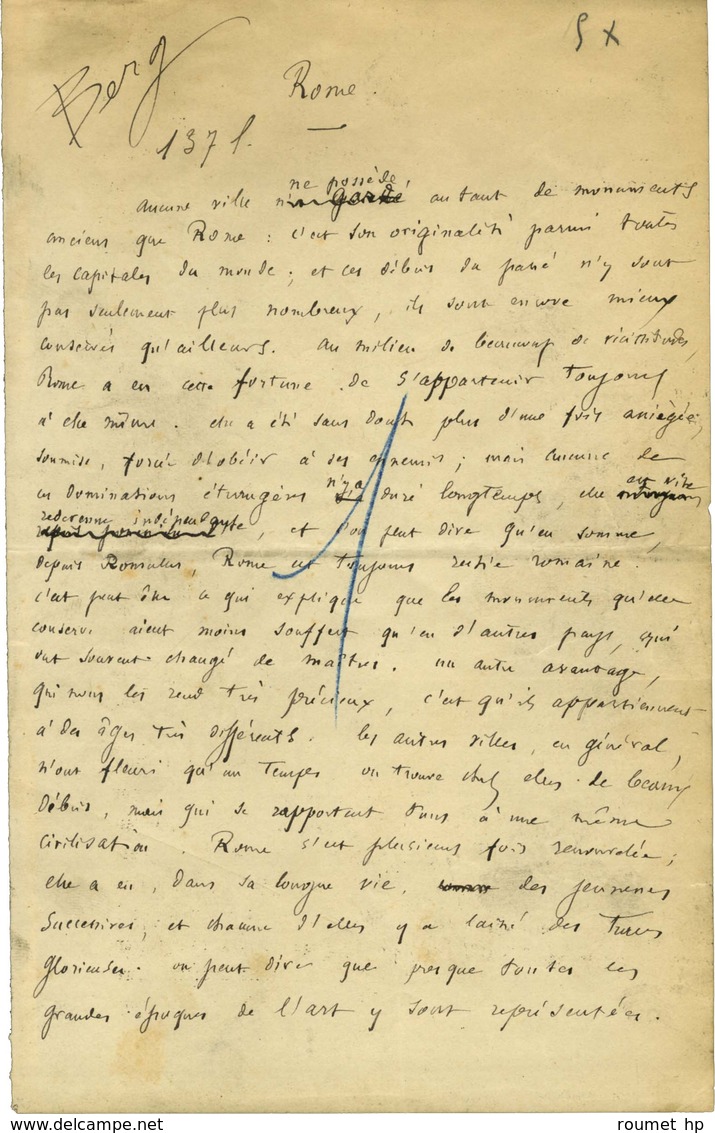 5 X
Berg
Rome.
137 l.
ne possède,
Aucune ville n'a gardé autant de monuments
anciens que Rome : c'est son originalité parmi toutes
les capitales du monde ; et ces débris du passé n'y sont
pas seulement plus nombreux, ils sont encore mieux
conservés qu'ailleurs. Au milieu de beaucoup de vicissitudes,
Rome a eu cette fortune de s'appartenir toujours
à elle même. elle a été sans doute plus d'une fois assiégée,
soumise, forcée d'obéir à ses ennemis ; mais aucune de
n'y a
ces dominations étrangères duré longtemps, elle
est vite
redevenue indépendante, et l'on peut dire qu'en somme,
depuis Romulus, Rome est toujours restée romaine.
c'est peut être ce qui explique que les monuments qu'elle
conserve aient moins souffert qu'en d'autres pays, qui
ont souvent changé de maîtres. un autre avantage,
qui nous les rend très précieux, c'est qu'ils appartiennent
à des âges très différents. les autres villes, en général,
n'ont fleuri qu'un temps on trouve chez elles de beaux
débris, mais qui se rapportent tous à une même
civilisation. Rome s'est plusieurs fois renouvelée ;
elle a eu, dans sa longue vie, des jeunesses
successives, et chacune d'elles y a laissé des traces
glorieuses. on peut dire que presque toutes les
grandes époques de l'art y sont représentées.
roumet hp